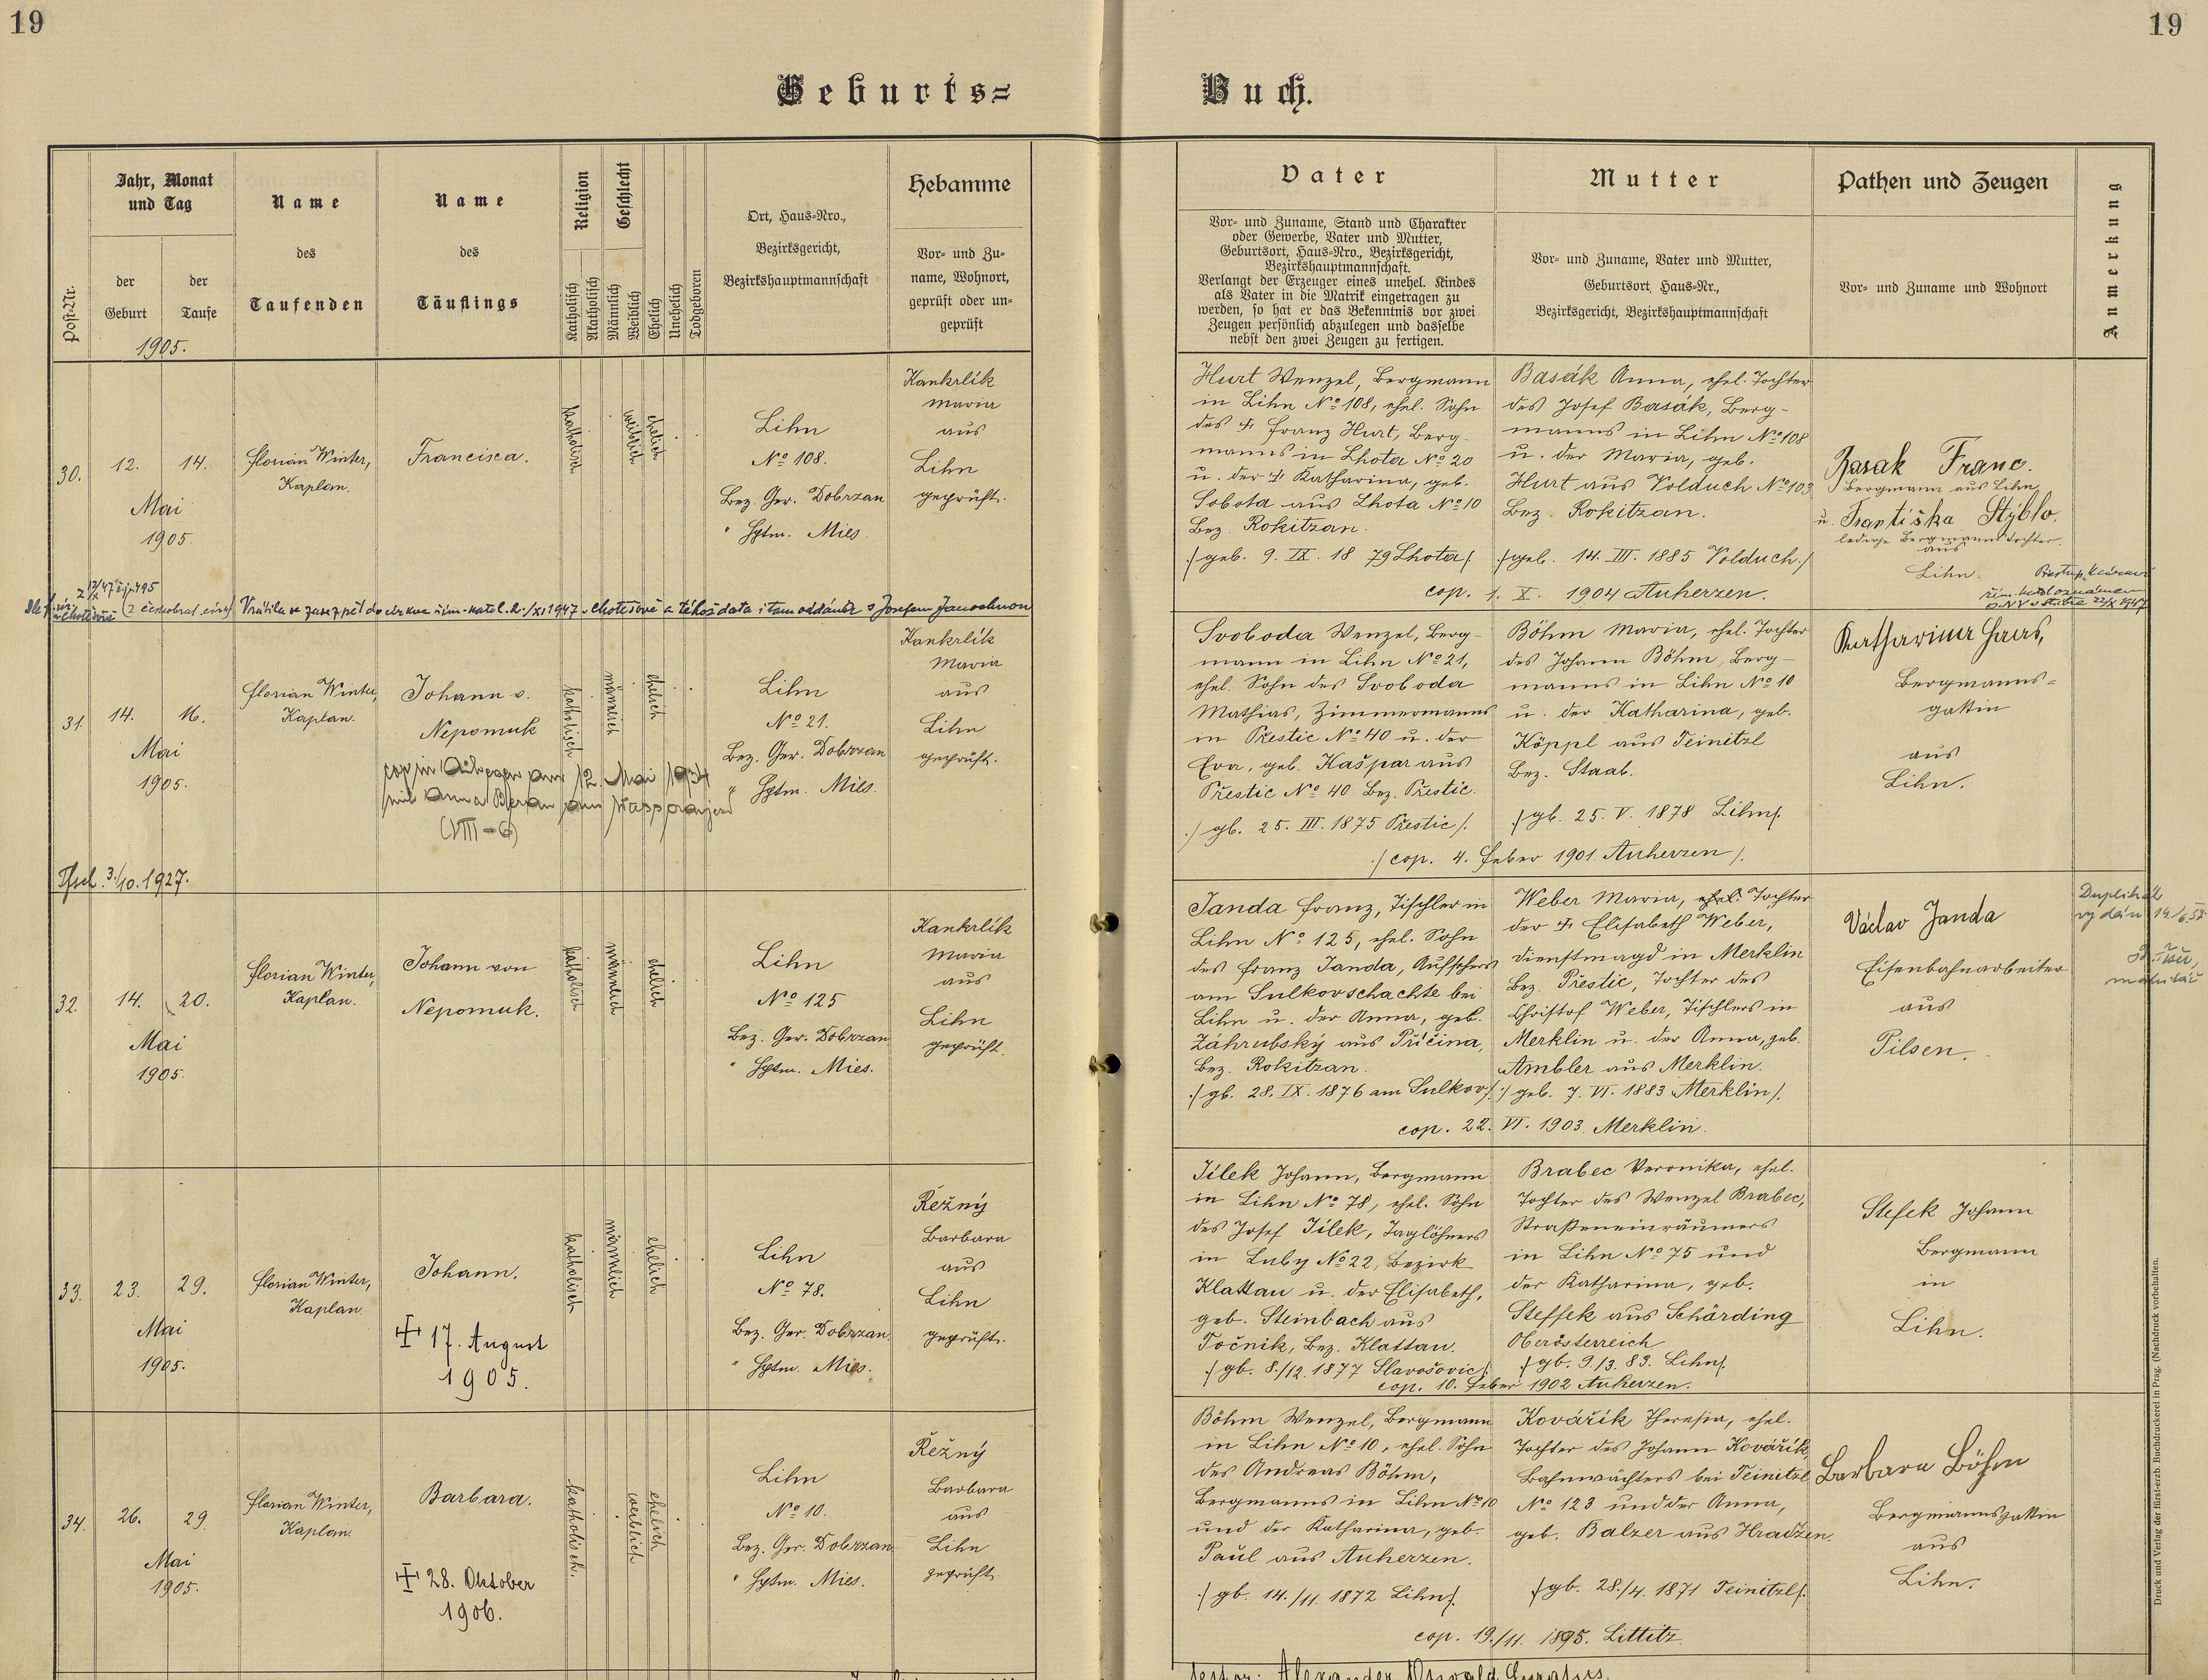 19
19
Geburts=
Buch.
Post-Nr.
Jahr, Monat
und Tag
der
Geburt
der
Taufe
1905.
Name
des
Taufenden
Name
des
Täuflings
Religion
Katholisch
Akatholisch
Geschlecht
Männlich
Weiblich
Ehelich
Unehelich
Todgeboren
Ort, Haus-Nro.,
Bezirksgericht,
Bezirkshauptmannschaft
Hebamme
Vor- und Zu-
name, Wohnort,
geprüft oder un-
geprüft
Vater
Vor- und Zuname, Stand und Charakter
oder Gewerbe, Vater und Mutter,
Geburtsort, Haus-Nro., Bezirksgericht,
Bezirkshauptmannschaft.
Verlangt der Erzeuger eines unehel. Kindes
als Vater in die Matrik eingetragen zu
werden, so hat er das Bekenntnis vor zwei
Zeugen persönlich abzulegen und dasselbe
nebst den zwei Zeugen zu fertigen.
Mutter
Vor- und Zuname, Vater und Mutter,
Geburtsort, Haus-Nr.,
Bezirksgericht, Bezirkshauptmannschaft
Pathen und Zeugen
Vor- und Zuname und Wohnort
Anmerkung
30.
12. 14.
Mai
1905.
Florian Winter,
Kaplan.
Francisca.
katholisch
weiblich
ehelich
Lihn
No 108.
Bez. Ger. Dobrzan
" Hptm. Mies.
Kankrlík
Maria
aus
Lihn
geprüft.
Hurt Wenzel, Bergmann
in Lihn No 108, ehel. Sohn
des † Franz Hurt, Berg-
manns in Lhota No 20
u. der † Katharina, geb.
Sobota aus Lhota No 10
Bez. Rokitzan.
/: geb. 9. IX. 1879 Lhota :/
Basák Anna, ehel. Tochter
des Josef Basák, Berg-
manns in Lihn No 108
u. der Maria, geb.
Hurt aus Volduch No 103
Bez. Rokitzan.
/: geb. 14. III. 1885 Volduch :/
cop. 1. X. 1904 Auherzen.
Basak Franc.
Bergmann aus Lihn
u. Františka Stýblo.
ledige Bergmannstochter
aus
Lihn.
Vrátila se zase zpět do církve řím.-katol. /XI 1947 v Chotěšově a téhož data i tam oddána s Josefem
31.
14. 16.
Mai
1905.
Florian Winter,
Kaplan.
Johann v.
Nepomuk
12. Mai 1934
(VIII-6)
3./10. 1927.
katholisch
männlich
ehelich
Lihn
No 21.
Bez. Ger. Dobrzan
" Hptm. Mies.
Kankrlík
Maria
aus
Lihn
geprüft.
Svoboda Wenzel, Berg-
mann in Lihn No 21,
ehel. Sohn des Svoboda
Mathias, Zimmermanns
in Přestic No 40 u. der
Eva, geb. Kašpar aus
Přestic No 40 Bez. Přestic.
/: gb. 25. III. 1875 Přestic :/
Böhm Maria, ehel. Tochter
des Johann Böhm, Berg-
manns in Lihn No 10
u. der Katharina, geb.
Köppl aus Teinitzl
Bez. Staab.
/: gb. 25. V. 1878 Lihn :/
/: cop. 4. Feber 1901. Auherzen :/
Katharina Haas,
Bergmanns=
gattin
aus
Lihn.
32.
14. 20.
Mai
1905.
Florian Winter,
Kaplan.
Johann von
Nepomuk.
katholisch
männlich
ehelich
Lihn
No 125
Bez. Ger. Dobrzan
" Hptm. Mies.
Kankrlík
Maria
aus
Lihn
geprüft.
Janda Franz, Tischler in
Lihn No 125, ehel. Sohn
des Franz Janda, Aufsehers
am Sulkovschachte bei
Lihn u. der Anna, geb.
Záhrubský aus Příčina,
Bez. Rokitzan.
/: gb. 28. IX. 1876 am Sulkov :/
Weber Maria, ehel. Tochter
der † Elisabeth Weber,
Dienstmagd in Merklin
Bez. Přestic, Tochter des
Christof Weber, Tischlers in
Merklin u. der Anna, geb.
Ambler aus Merklin.
/: geb. 7. VI. 1883 Merklin :/
cop. 22. VI. 1903. Merklin.
Václav Janda
Eisenbahnarbeiter
aus
Pilsen.
Duplikát
vydán 14/6.57
33.
23. 29.
Mai
1905.
Florian Winter,
Kaplan.
Johann.
† 17. August
1905.
katholisch
männlich
ehelich
Lihn
No 78.
Bez. Ger. Dobrzan.
" Hptm. Mies.
Řežný
Barbara
aus
Lihn
geprüft.
Jílek Johann, Bergmann
in Lihn No 78, ehel. Sohn
des Josef Jílek, Taglöhners
in Luby No 22, Bezirk
Klattau u. der Elisabeth,
geb. Steinbach aus
Točnik, Bez. Klattau.
/: gb. 8./12. 1877 Slavošovic :/
Brabec Veronika, ehel.
Tochter des Wenzel Brabec,
Straßeneinräumers
in Lihn No 75 und
der Katharina, geb.
Steffek aus Schärding
Oberösterreich
/: gb. 9./3. 83. Lihn :/
cop. 10. Feber 1902 Auherzen.
Stefek Johann
Bergmann
in
Lihn.
34.
26. 29
Mai
1905.
Florian Winter,
Kaplan.
Barbara.
† 28. Oktober
1906.
katholisch.
weiblich
ehelich
Lihn
No 10.
Bez. Ger. Dobrzan
" Hptm. Mies.
Řežný
Barbara
aus
Lihn
geprüft.
Böhm Wenzel, Bergmann
in Lihn No 10, ehel. Sohn
des Andreas Böhm,
Bergmanns in Lihn No 10
und der Katharina, geb.
Paul aus Auherzen.
/: gb. 14./11. 1872 Lihn :/
Kovářík Theresia, ehel.
Tochter des Johann Kovářík,
Bahnwächters bei Teinitzl
No 123 und der Anna,
geb. Balzer aus Hradzen.
/: gb. 28./4. 1871 Teinitzl :/
cop. 19./11. 1895. Littitz.
Barbara Böhm
Bergmannsgattin
aus
Lihn.
Druck und Verlag der fürst-erzb. Buchdruckerei in Prag. (Nachdruck vorbehalten.